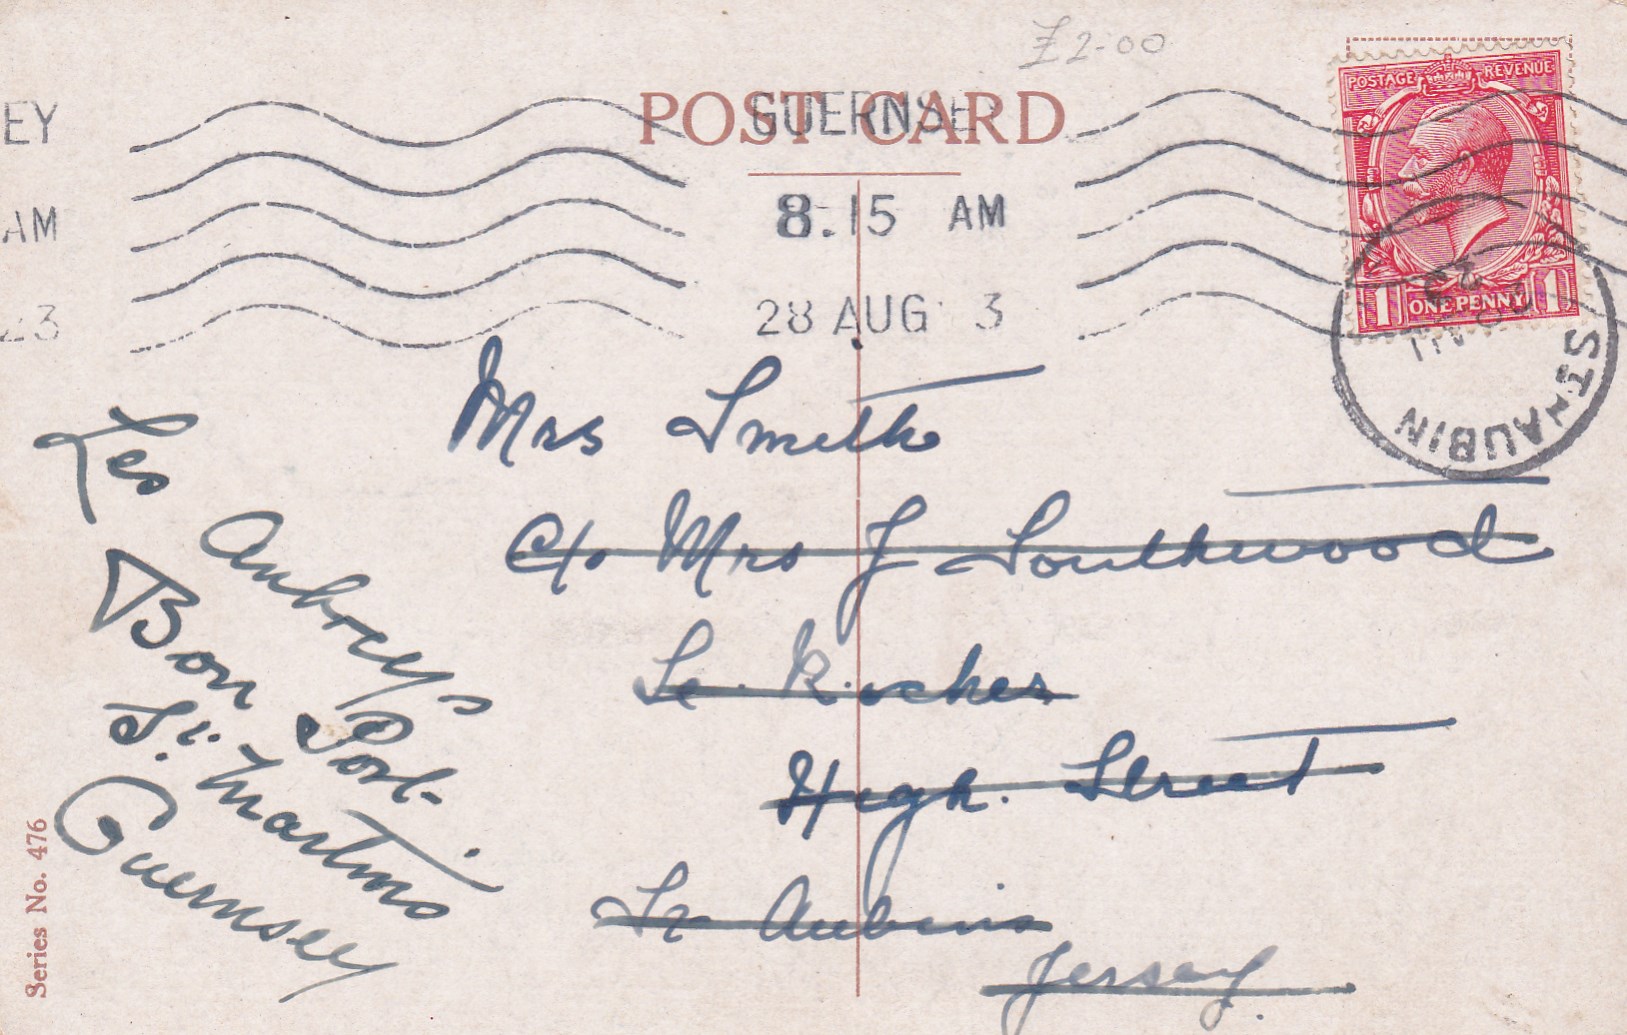 £2-00
POST CARD
GUERNSEY
8.15 AM
28 AUG 3
EY
AM
23
POSTAGE REVENUE
1 ONE PENNY 1
ST. AUBIN
23
Mrs Smith
c/o Mrs J Southwood
Le Rocher
High Street
St Aubins
Jersey
Les Aubreys
Bon Port
St. Martins
Guernsey
Series No. 476